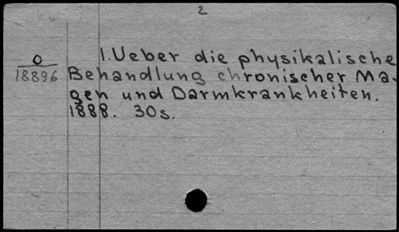 2
O 1. Ueber die physikalische
18896 Behandlung chronischer Ma-
gen und Darmkrankheiten.
1888. 30s.